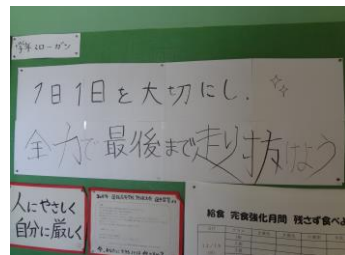 学年スローガン
1日1日を大切にし、
全力で最後まで走り抜けよう
人にやさしく
自分に厳しく
給食 完食強化月間 残さず食べよ